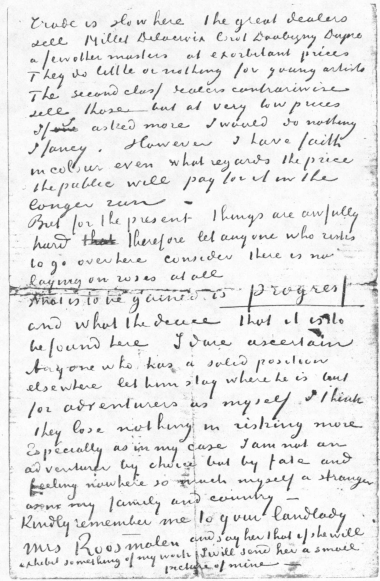 Trade is slow here the great dealers
sell Millet Delacroix Corot Daubigny Dupré
a few other masters at exorbitant prices
They do little or nothing for young artists
The second class dealers contrariwise
sell those but at very low prices
If I asked more I would do nothing
I fancy. However I have faith
in colour even what regards the price
the public will pay for it in the
longer run —
But for the present things are awfully
hard that therefore let anyone who risks
to go over here consider there is no
laying on roses at all
What is to be gained is progress
and what the deuce that it is to
be found here I dare ascertain
Anyone who has a solid position
elsewhere let him stay where he is but
for adventurers as myself I think
they lose nothing in risking more
Especially as in my case I am not an
adventurer by choice but by fate and
feeling nowhere so much myself a stranger
as in my family and country —
Kindly remember me to your landlady
Mrs Roosmalen and say her that if she will
exhibit something of my work I will send her a small
picture of mine